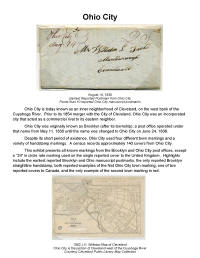 Ohio City
August 16, 1838
Earliest Reported Postmark from Ohio City
Ohio City is today known as an inner neighborhood of Cleveland, on the west bank of the
Cuyahoga River. Prior to its 1854 merger with the City of Cleveland, Ohio City was an incorporated
city that acted as a commercial rival to its eastern neighbor.
Ohio City was originally known as Brooklyn (after its township); a post office operated under
that name from May 11, 1830 until the name was changed to Ohio City on June 24, 1838.
Despite its short period of existence, Ohio City used four different town markings and a
variety of handstamp markings. A census records approximately 140 covers from Ohio City.
This exhibit presents all known markings from the Brooklyn and Ohio City post offices, except
a "24" in circle rate marking used on the single reported cover to the United Kingdom. Highlights
include the earliest reported Brooklyn and Ohio City manuscript postmarks, the only reported Brooklyn
straightline handstamp, both reported examples of the first Ohio City town marking, one of two
reported covers to Canada, and the only example of the second straightline town marking.
Ohio City is the portion of Cleveland west of the Cuyahoga River
Courtesy Cleveland Public Library Map Collection